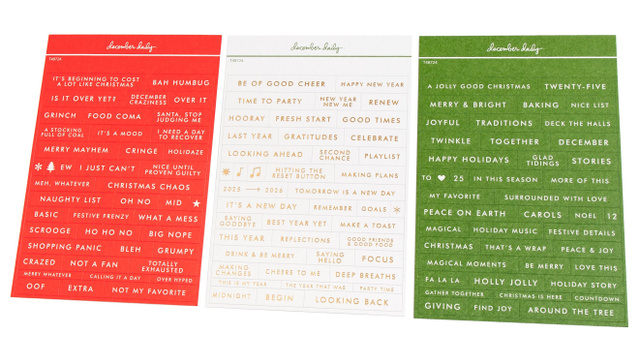 december daily
748724
IT'S BEGINNING TO COST A LOT LIKE CHRISTMAS
BAH HUMBUG
IS IT OVER YET?
DECEMBER CRAZINESS
OVER IT
GRINCH
FOOD COMA
SANTA, STOP JUDGING ME
A STOCKING FULL OF COAL
IT'S A MOOD
I NEED A DAY TO RECOVER
MERRY MAYHEM
CRINGE
HOLIDAZE
EW
I JUST CAN'T
NICE UNTIL PROVEN GUILTY
MEH, WHATEVER
CHRISTMAS CHAOS
NAUGHTY LIST
OH NO
MID
BASIC
FESTIVE FRENZY
WHAT A MESS
SCROOGE
HO HO NO
BIG NOPE
SHOPPING PANIC
BLEH
GRUMPY
CRAZED
NOT A FAN
TOTALLY EXHAUSTED
MERRY WHATEVER
CALLING IT A DAY
OVER HYPED
OOF
EXTRA
NOT MY FAVORITE
december daily
748724
BE OF GOOD CHEER
HAPPY NEW YEAR
TIME TO PARTY
NEW YEAR NEW ME
RENEW
HOORAY
FRESH START
GOOD TIMES
LAST YEAR
GRATITUDES
CELEBRATE
LOOKING AHEAD
SECOND CHANCE
PLAYLIST
HITTING THE RESET BUTTON
MAKING PLANS
2025 → 2026
TOMORROW IS A NEW DAY
IT'S A NEW DAY
REMEMBER
GOALS
SAYING GOODBYE
BEST YEAR YET
MAKE A TOAST
THIS YEAR
REFLECTIONS
GOOD FRIENDS & GOOD FOOD
DRINK & BE MERRY
SAYING HELLO
FOCUS
MAKING CHANGES
CHEERS TO ME
DEEP BREATHS
THIS IS MY YEAR
THE YEAR THAT WAS
PARTY TIME
MIDNIGHT
BEGIN
LOOKING BACK
december daily
748724
A JOLLY GOOD CHRISTMAS
TWENTY-FIVE
MERRY & BRIGHT
BAKING
NICE LIST
JOYFUL
TRADITIONS
DECK THE HALLS
TWINKLE
TOGETHER
DECEMBER
HAPPY HOLIDAYS
GLAD TIDINGS
STORIES
TO ♥ 25
IN THIS SEASON
MORE OF THIS
MY FAVORITE
SURROUNDED WITH LOVE
PEACE ON EARTH
CAROLS
NOEL
12
MAGICAL
HOLIDAY MUSIC
FESTIVE DETAILS
CHRISTMAS
THAT'S A WRAP
PEACE & JOY
MAGICAL MOMENTS
BE MERRY
LOVE THIS
FA LA LA
HOLLY JOLLY
HOLIDAY STORY
GATHER TOGETHER
CHRISTMAS IS HERE
COUNTDOWN
GIVING
FIND JOY
AROUND THE TREE